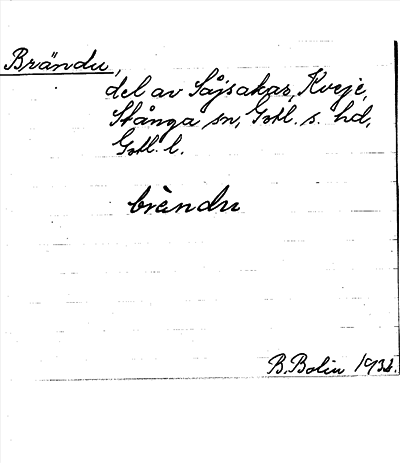 Brändu,
del av Såjsakar, Kveje,
Stånga sn, Gotl. s. hd,
Gotl. l.
brändu
B. Bolin 1932.